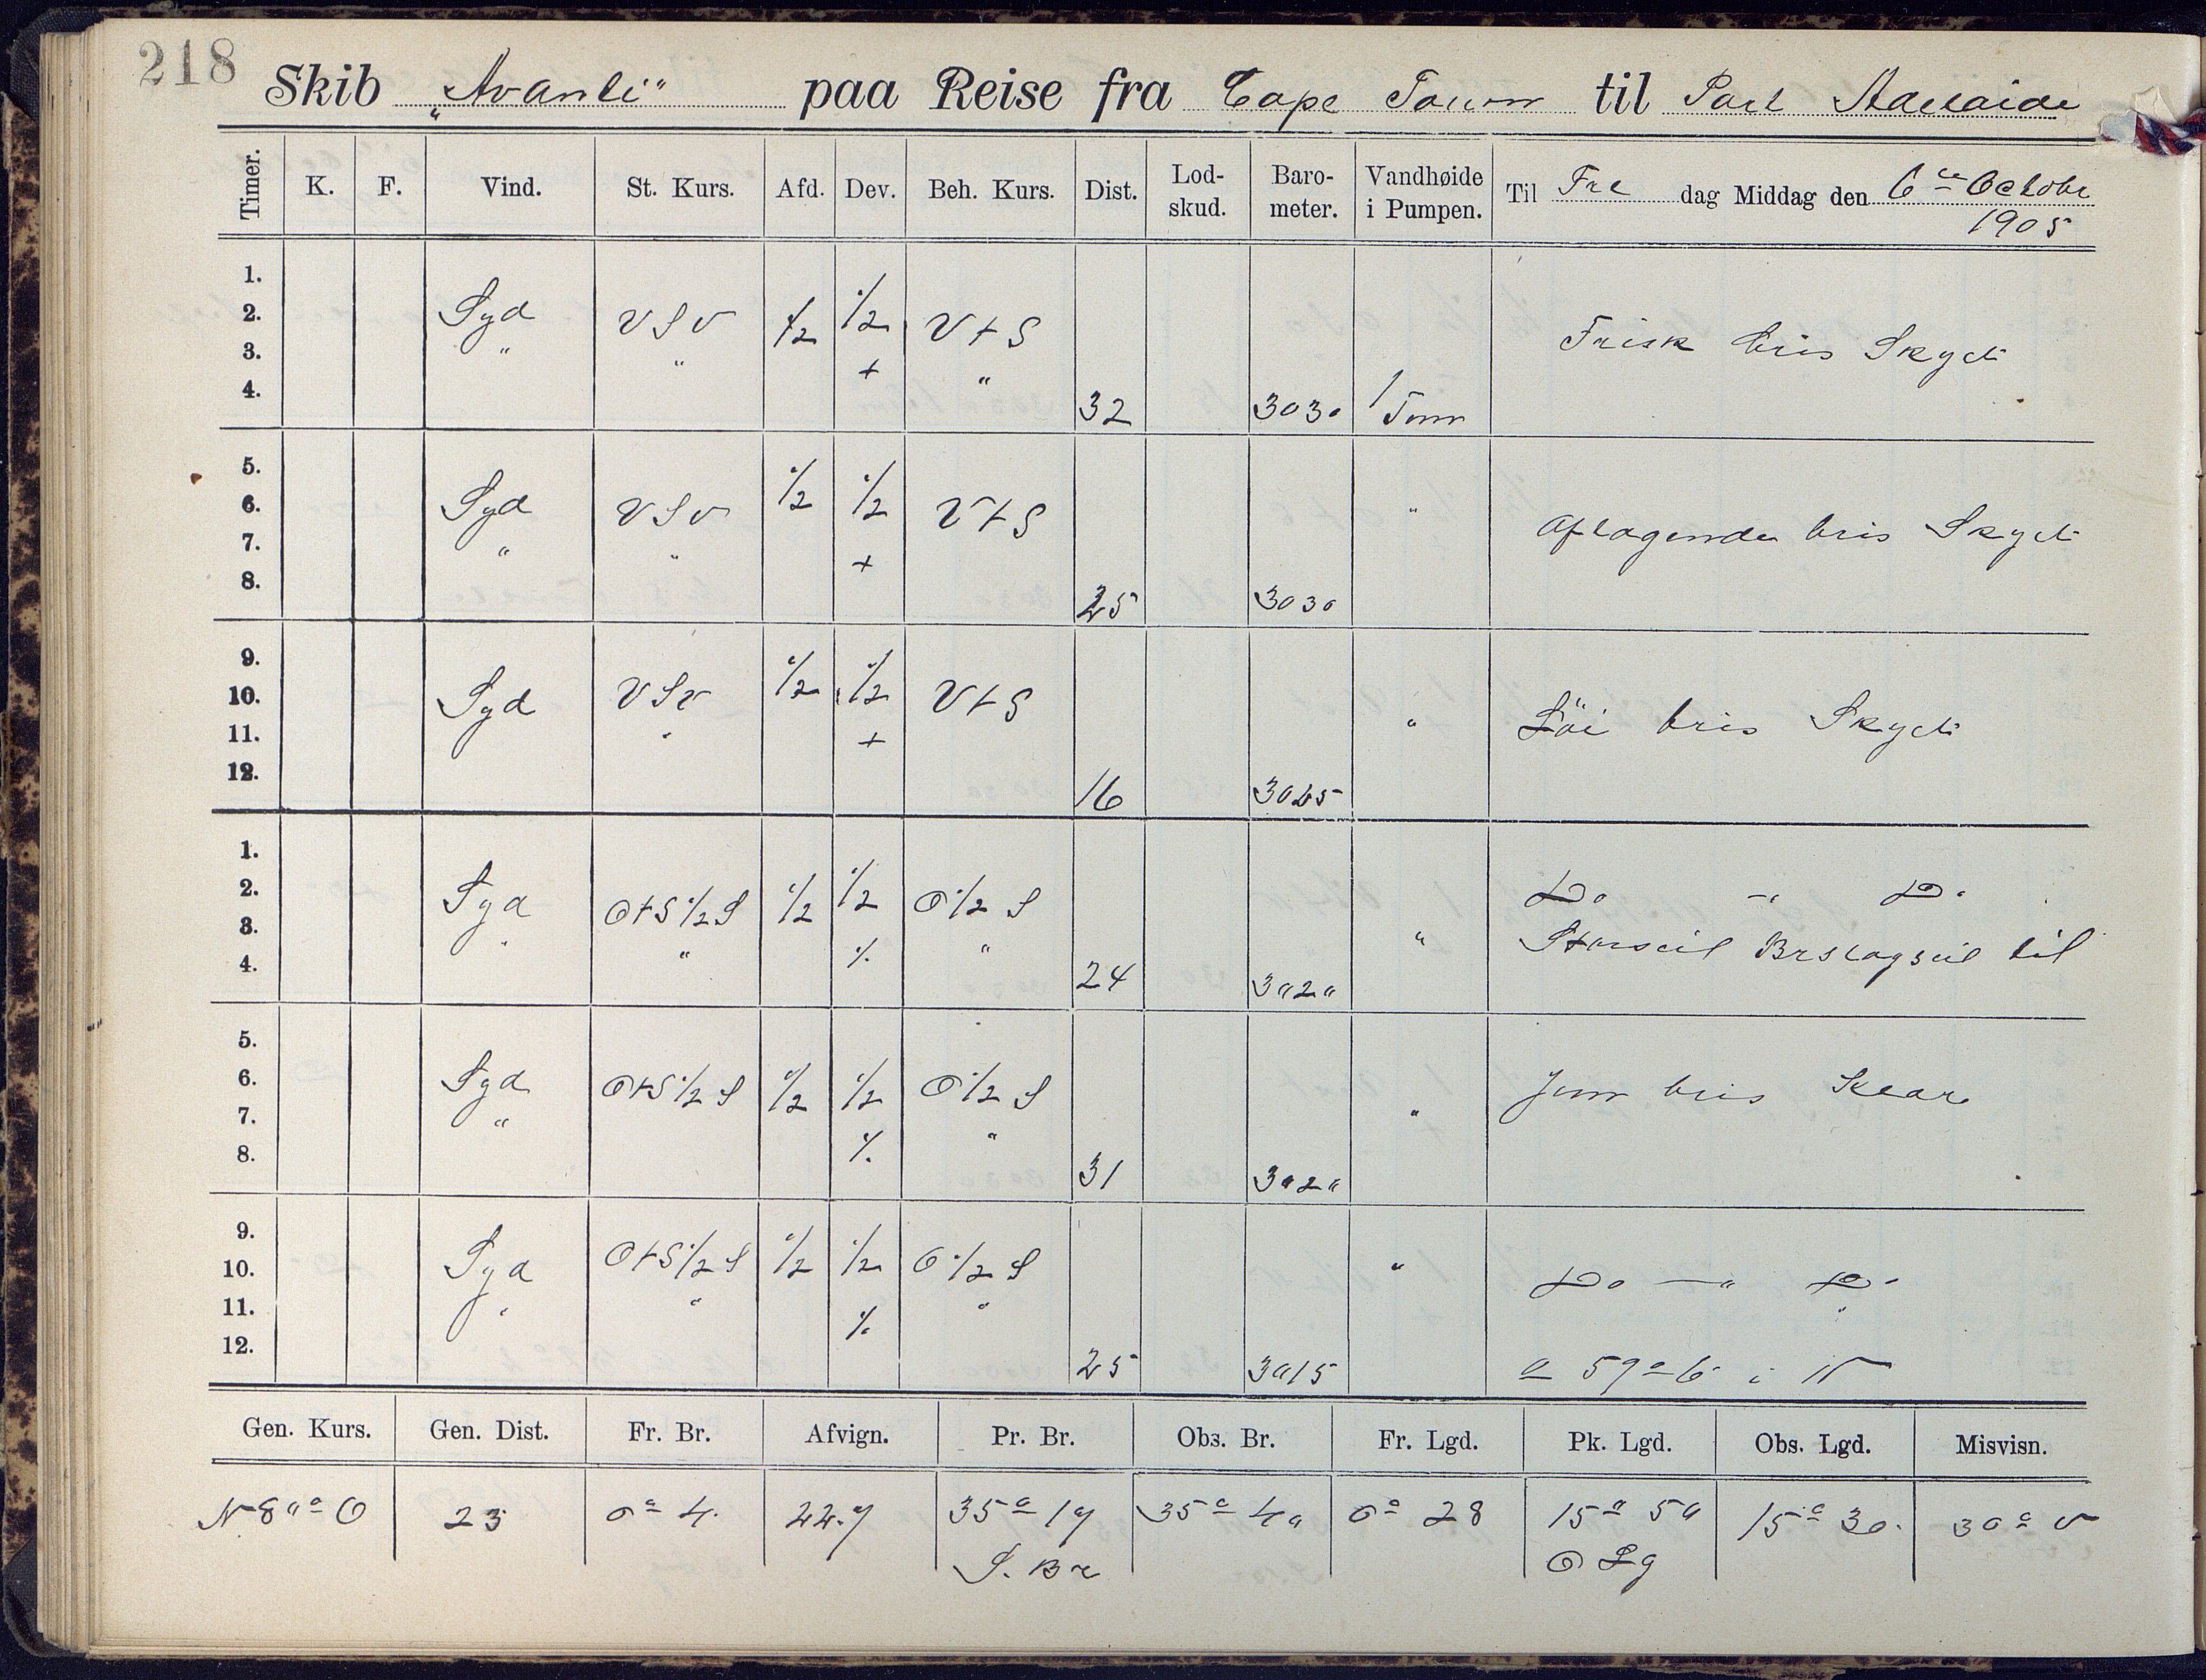 218
Skib „Avanti" paa Reise fra Cape Town til Port Adelaide
Timer. K. F. Vind. St. Kurs. Afd. Dev. Beh. Kurs. Dist. Lod-skud. Baro-meter. Vandhøide i Pumpen. Til Fre dag Middag den 6te October 1905
1.
2. Syd VSV 1/2 1/2 V t S Frisk bris Skyet
3. " " + "
4. 32 3030 1 Tom
5.
6. Syd VSV 1/2 1/2 V t S " Aftagende bris Skyet
7. " " +
8. 25 3030
9.
10. Syd VSV 1/2 1/2 V t S " Löi bris Skyet
11. " +
12. 16 3025
1.
2. Syd O t S 1/2 S 1/2 1/2 O 1/2 S Do — " Do
3. " " % " " Storseil Brstagseil til
4. 24 3020
5.
6. Syd O t S 1/2 S 1/2 1/2 O 1/2 S Jevn bris Klar
7. " % " "
8. 31 3020
9.
10. Syd O t S 1/2 S 1/2 1/2 O 1/2 S " Do — " Do
11. " " % "
12. 25 3015
Gen. Kurs. Gen. Dist. Fr. Br. Afvign. Pr. Br. Obs. Br. Fr. Lgd. Pk. Lgd. Obs. Lgd. Misvisn.
N 80° O 23 0° 4 22.7 35° 17 35° 40 0° 28 15° 50 15° 30 30° V
S. Br O Lg